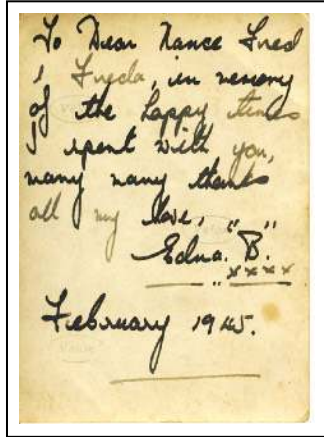 To Dear Nance Fred
& Freda, in memory
of the happy times
I spent with you,
many many thanks
all my love, " "
Edna. B.
xxxx
February 1945.